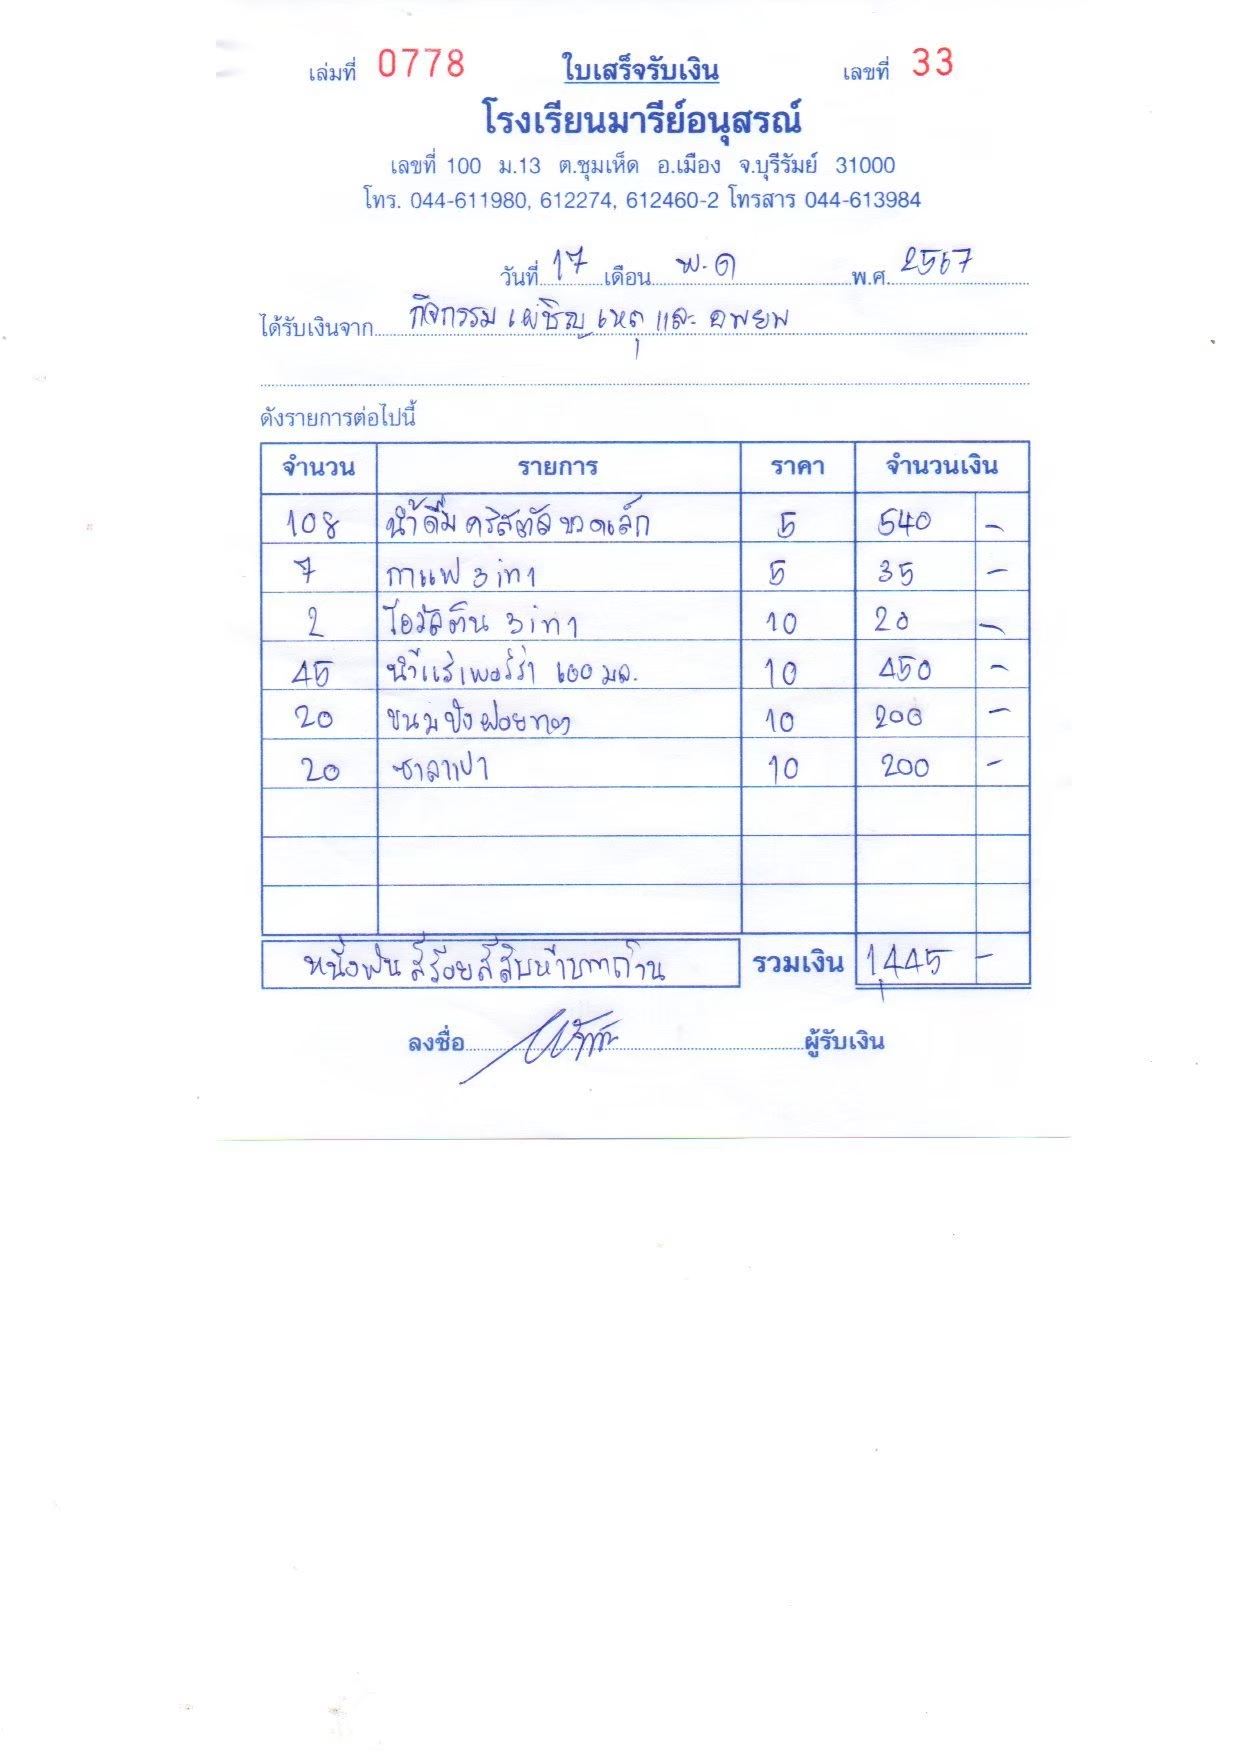 เล่มที่ 0778 ใบเสร็จรับเงิน เลขที่ 33
โรงเรียนมารีย์อนุสรณ์
เลขที่ 100 ม.13 ต.ชุมเห็ด อ.เมือง จ.บุรีรัมย์ 31000
โทร. 044-611980, 612274, 612460-2 โทรสาร 044-613984
วันที่ 17 เดือน พ.ค พ.ศ. 2567
ได้รับเงินจาก กิจกรรม เผชิญเหตุ และ อพยพ
ดังรายการต่อไปนี้
จำนวน รายการ ราคา จำนวนเงิน
108 น้ำดื่ม คริสตัล ขวดเล็ก 5 540 -
7 กาแฟ 3 in 1 5 35 -
2 โอวัลติน 3 in 1 10 20 -
45 น้ำแร่เพอร์ร่า 600 มล. 10 450 -
20 ขนมปังฝอยทอง 10 200 -
20 ซาลาเปา 10 200 -
หนึ่งพันสี่ร้อยสี่สิบห้าบาทถ้วน รวมเงิน 1,445 -
ลงชื่อ ผู้รับเงิน